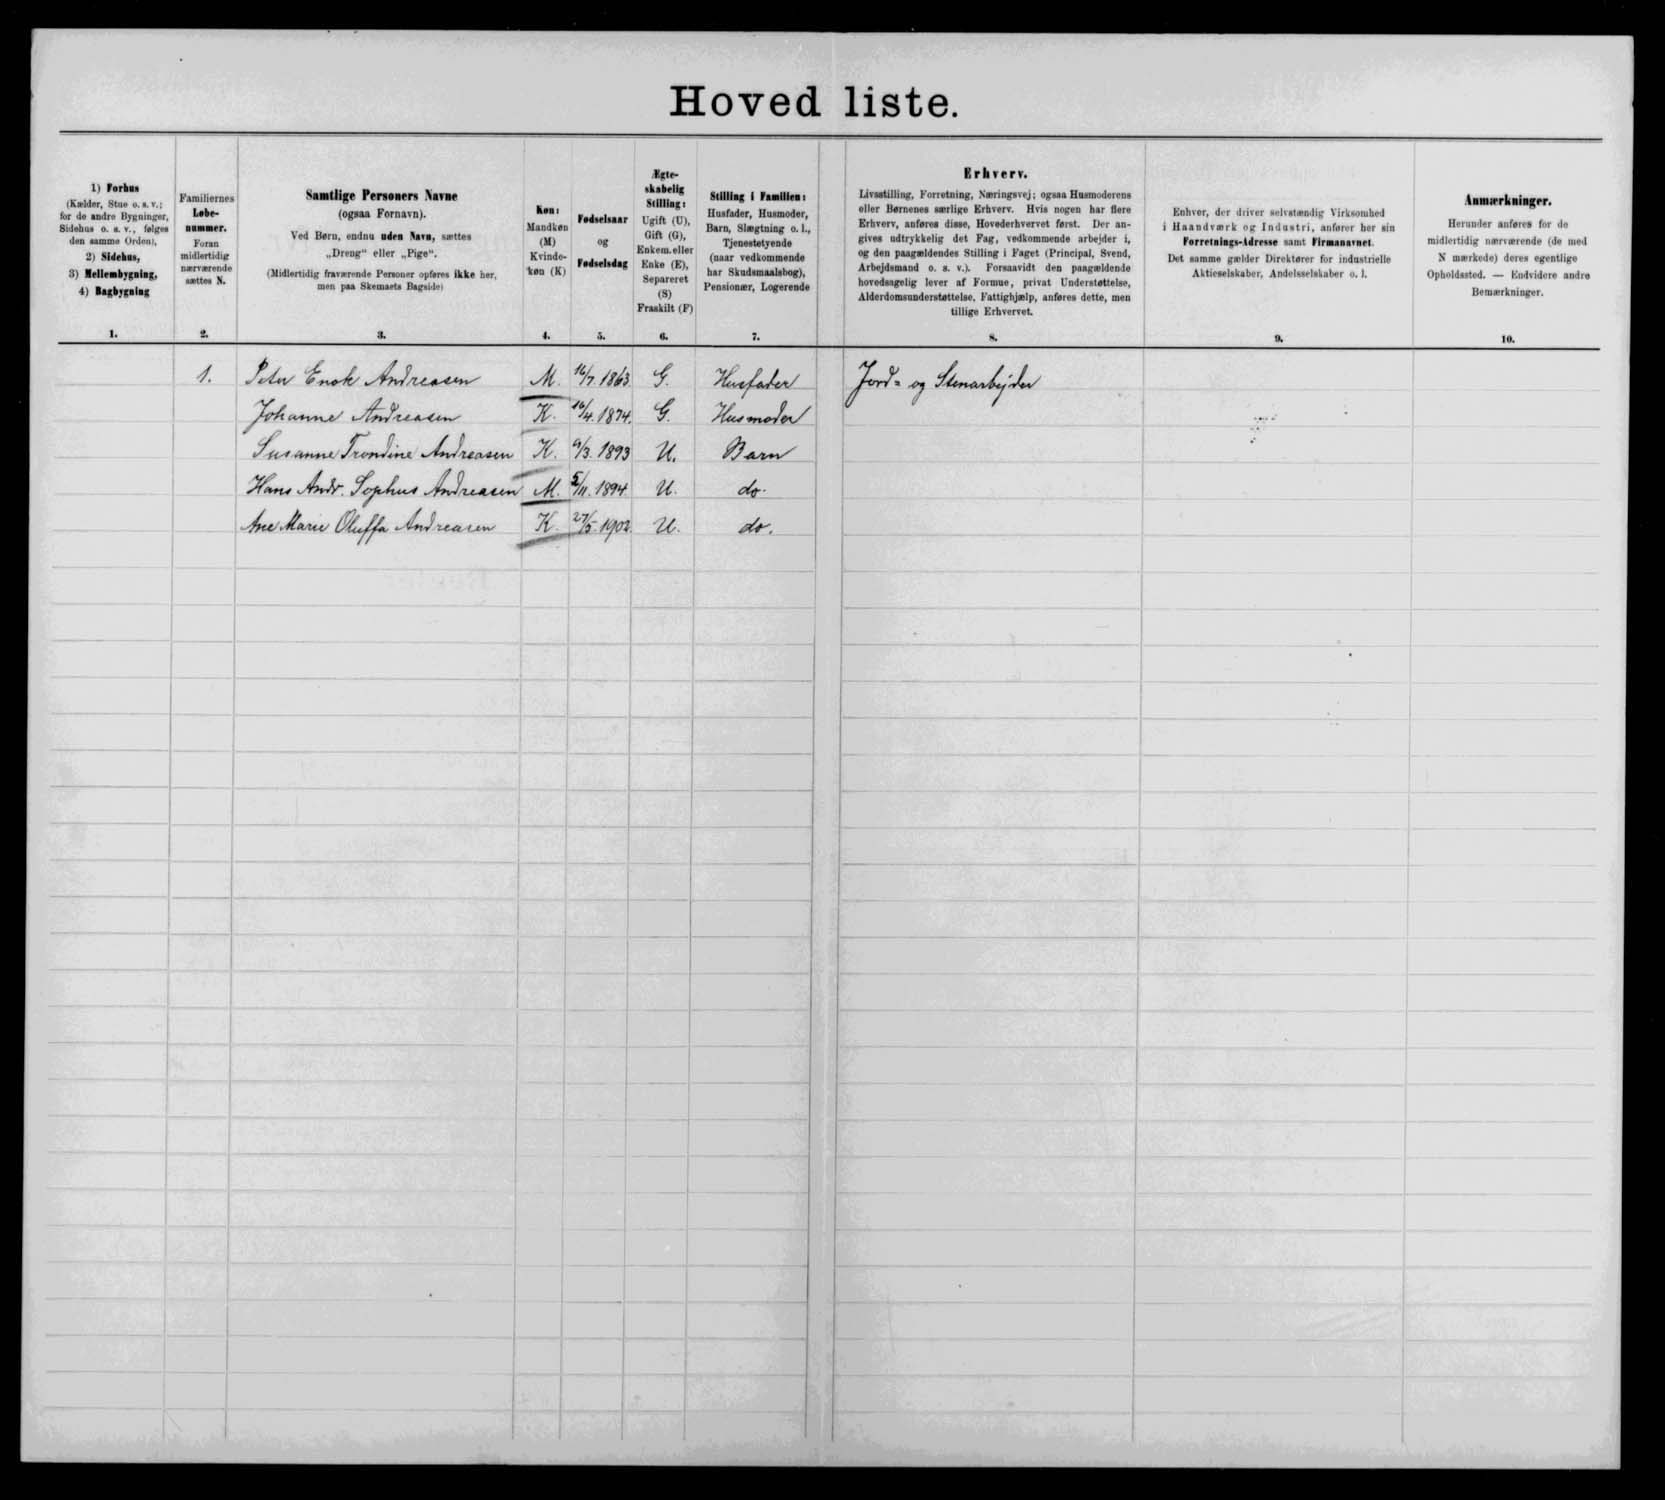 Hoved liste.
1) Forhus
(Kælder, Stue o. s. v.;
for de andre Bygninger,
Sidehus o. s. v., følges
den samme Orden),
2) Sidehus,
3) Mellembygning,
4) Bagbygning
1.
Familiernes
Løbe-
nummer.
Foran
midlertidig
nærværende
sættes N.
2.
Samtlige Personers Navne
(ogsaa Fornavn).
Ved Børn, endnu uden Navn, sættes
„Dreng“ eller „Pige“.
(Midlertidig fraværende Personer opføres ikke her,
men paa Skemaets Bagside)
3.
Køn:
Mandkøn
(M)
Kvinde-
køn (K)
4.
Fødselsaar
og
Fødselsdag
5.
Ægte-
skabelig
Stilling:
Ugift (U),
Gift (G),
Enkem. eller
Enke (E),
Separeret
(S)
Fraskilt (F)
6.
Stilling i Familien:
Husfader, Husmoder,
Barn, Slægtning o. l.,
Tjenestetyende
(naar vedkommende
har Skudsmaalsbog),
Pensionær, Logerende
7.
Erhverv.
Livsstilling, Forretning, Næringsvej; ogsaa Husmoderens
eller Børnenes særlige Erhverv. Hvis nogen har flere
Erhverv, anføres disse, Hovederhvervet først. Der an-
gives udtrykkelig det Fag, vedkommende arbejder i,
og den paagældendes Stilling i Faget (Principal, Svend,
Arbejdsmand o. s. v.). Forsaavidt den paagældende
hovedsagelig lever af Formue, privat Understøttelse,
Alderdomsunderstøttelse, Fattighjælp, anføres dette, men
tillige Erhvervet.
8.
Enhver, der driver selvstændig Virksomhed
i Haandværk og Industri, anfører her sin
Forretnings-Adresse samt Firmanavnet.
Det samme gælder Direktører for industrielle
Aktieselskaber, Andelsselskaber o. l.
9.
Anmærkninger.
Herunder anføres for de
midlertidig nærværende (de med
N mærkede) deres egentlige
Opholdssted. — Endvidere andre
Bemærkninger.
10.
1. Peter Enok Andreasen M. 16/7. 1863. G. Husfader Jord= og Stenarbejder
Johanne Andreasen K. 16/4. 1874. G. Husmoder
Susanne Trondine Andreasen K. 9/3. 1893 U. Barn
Hans Andr. Sophus Andreasen M. 5/11. 1894. U. do.
Ane Marie Oluffa Andreasen K. 27/5. 1902. U. do.